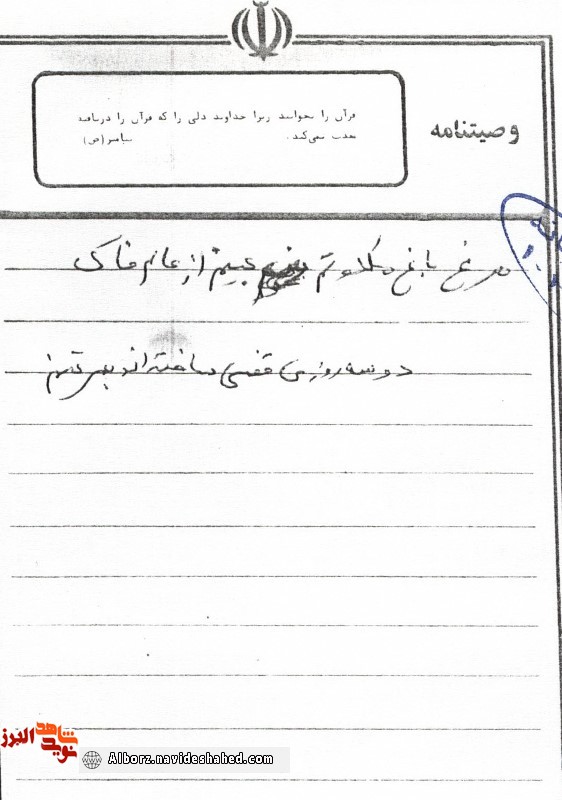 وصیتنامه
قرآن را بخوانید زیرا خداوند دلی را که قرآن را دریافته
عذب نمی‌کند. پیامبر (ص)
مرغ باغ ملکوتم نیم از عالم خاک
دو سه روزی قفسی ساخته اند بدنم
شاهد
نوید
البرز
Alborz.navideshahed.com